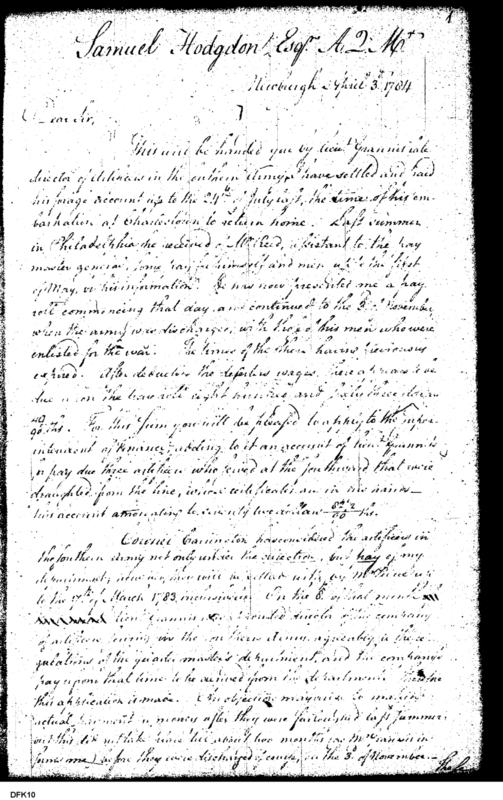 1
Samuel Hodgdon Esqr. A. Q. Mr.
Newburgh April 3d. 1784
Dear Sir,
This will be handed you by lieut. Grannis late
director of artificers in the southern army. I have settled and paid
his forage account up to the 24th of July last, the time of his em-
barkation at Charlestown to return home. Last summer
in Philadelphia he received of Mr. Reed, assistant to the pay
master general, some pay for himself and men up to the first
of May, as his information. He has now presented me a pay
roll commencing that day and continued to the 3d of November
when the army was discharged, with those of his men who were
enlisted for the war. The times of the others having previously
expired. After deducting the deserters wages, there appears to be
due upon the pay roll eight hundred and sixty three dollars
90 ths. For this sum you will be pleased to apply to the super-
intendent of finance; adding to it an account of lieut. Grannis
for pay due three artificers who served at the southward that were
draughted from the line, whose certificates are in his hands
his account amounting to seventy two dollars 90 ths.
Colonel Carrington has considered the artificers in
the southern army not only under the direction, but pay of my
department,
to the 17th of March 1783 inclusive. On the 8th of that month
lieut. Grannis director of the company
of artificers serving in the southern army, agreeably to the re-
gulations of the quarter master's department, and the company's
pay upon that time to be derived from the department. Therefore
this application is made. An objection may arise to making
actual payment in money after they were furloughed last summer:
but this did not take place till about two months
June
before they were discharged of course, on the 3d. of November.
The
DFK10